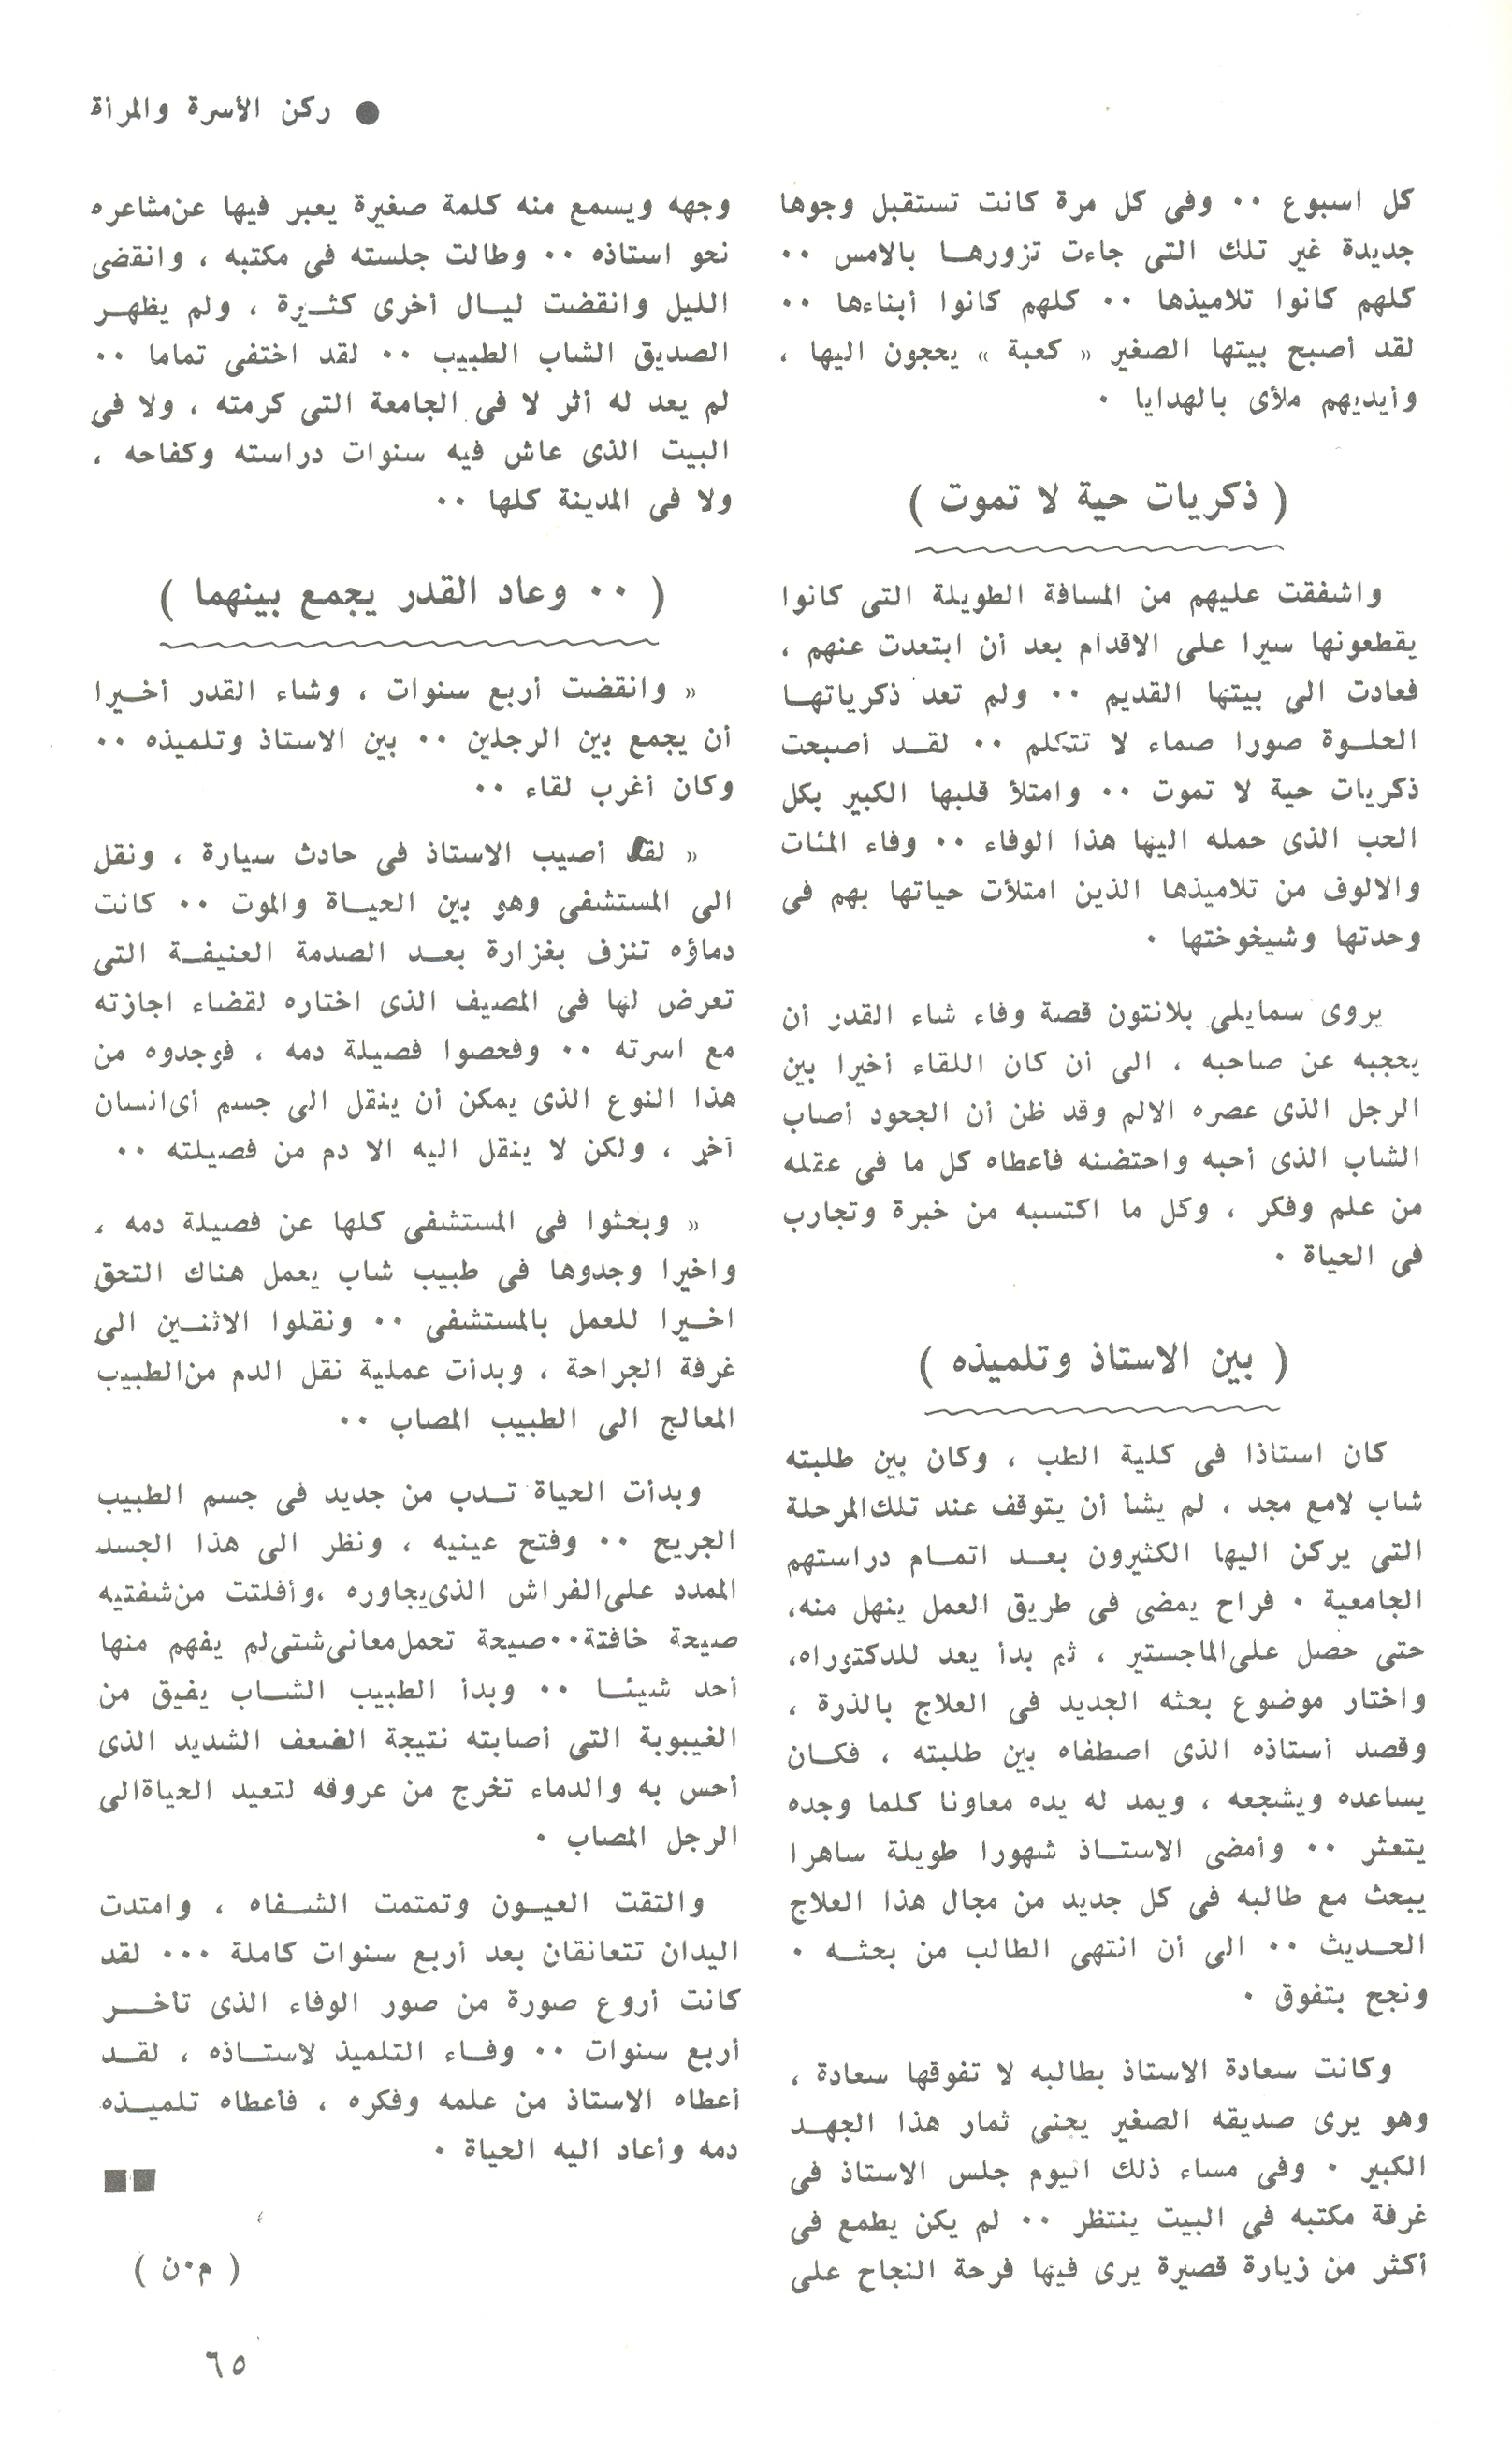 ● ركن الأسرة والمرأة
كل اسبوع ٠٠ وفى كل مرة كانت تستقبل وجوها
جديدة غير تلك التى جاءت تزورها بالامس ٠٠
كلهم كانوا تلاميذها ٠٠ كلهم كانوا أبناءها ٠٠
لقد أصبح بيتها الصغير « كعبة » يحجون اليها ،
وأيديهم ملأى بالهدايا ٠
( ذكريات حية لا تموت )
واشفقت عليهم من المسافة الطويلة التى كانوا
يقطعونها سيرا على الاقدام بعد أن ابتعدت عنهم ،
فعادت الى بيتها القديم ٠٠ ولم تعد ذكرياتها
الحلوة صورا صماء لا تتكلم ٠٠ لقد أصبحت
ذكريات حية لا تموت ٠٠ وامتلأ قلبها الكبير بكل
الحب الذى حمله اليها هذا الوفاء ٠٠ وفاء المئات
والالوف من تلاميذها الذين امتلأت حياتها بهم فى
وحدتها وشيخوختها ٠
يروى سمايلى بلانتون قصة وفاء شاء القدر أن
يحجبه عن صاحبه ، الى أن كان اللقاء أخيرا بين
الرجل الذى عصره الالم وقد ظن أن الجحود أصاب
الشاب الذى أحبه واحتضنه فأعطاه كل ما فى عقله
من علم وفكر ، وكل ما اكتسبه من خبرة وتجارب
فى الحياة ٠
( بين الاستاذ وتلميذه )
كان استاذا فى كلية الطب ، وكان بين طلبته
شاب لامع مجد ، لم يشأ أن يتوقف عند تلك المرحلة
التى يركن اليها الكثيرون بعد اتمام دراستهم
الجامعية ٠ فراح يمضى فى طريق العمل ينهل منه،
حتى حصل على الماجستير ، ثم بدأ يعد للدكتوراه،
واختار موضوع بحثه الجديد فى العلاج بالذرة ،
وقصد أستاذه الذى اصطفاه بين طلبته ، فكان
يساعده ويشجعه ، ويمد له يده معاونا كلما وجده
يتعثر ٠٠ وأمضى الاستاذ شهورا طويلة ساهرا
يبحث مع طالبه فى كل جديد من مجال هذا العلاج
الحديث ٠٠ الى أن انتهى الطالب من بحثه ٠
ونجح بتفوق ٠
وكانت سعادة الاستاذ بطالبه لا تفوقها سعادة ،
وهو يرى صديقه الصغير يجنى ثمار هذا الجهد
الكبير ٠ وفى مساء ذلك اليوم جلس الاستاذ فى
غرفة مكتبه فى البيت ينتظر ٠٠ لم يكن يطمع فى
أكثر من زيارة قصيرة يرى فيها فرحة النجاح على
وجهه ويسمع منه كلمة صغيرة يعبر فيها عن مشاعره
نحو استاذه ٠٠ وطالت جلسته فى مكتبه ، وانقضى
الليل وانقضت ليال أخرى كثيرة ، ولم يظهر
الصديق الشاب الطبيب ٠٠ لقد اختفى تماما ٠٠
لم يعد له أثر لا فى الجامعة التى كرمته ، ولا فى
البيت الذى عاش فيه سنوات دراسته وكفاحه ،
ولا فى المدينة كلها ٠٠
( ٠٠ وعاد القدر يجمع بينهما )
« وانقضت أربع سنوات ، وشاء القدر أخيرا
أن يجمع بين الرجلين ٠٠ بين الاستاذ وتلميذه ٠٠
وكان أغرب لقاء ٠٠
« لقد أصيب الاستاذ فى حادث سيارة ، ونقل
الى المستشفى وهو بين الحياة والموت ٠٠ كانت
دماؤه تنزف بغزارة بعد الصدمة العنيفة التى
تعرض لها فى المصيف الذى اختاره لقضاء اجازته
مع اسرته ٠٠ وفحصوا فصيلة دمه ، فوجدوه من
هذا النوع الذى يمكن أن ينقل الى جسم أى انسان
آخر ، ولكن لا ينقل اليه الا دم من فصيلته ٠٠
« وبحثوا فى المستشفى كلها عن فصيلة دمه ،
واخيرا وجدوها فى طبيب شاب يعمل هناك التحق
اخيرا للعمل بالمستشفى ٠٠ ونقلوا الاثنين الى
غرفة الجراحة ، وبدأت عملية نقل الدم من الطبيب
المعالج الى الطبيب المصاب ٠٠
وبدأت الحياة تدب من جديد فى جسم الطبيب
الجريح ٠٠ وفتح عينيه ، ونظر الى هذا الجسد
الممدد على الفراش الذى يجاوره ، وأفلتت من شفتيه
صيحة خافتة٠٠صيحة تحمل معانى شتى لم يفهم منها
أحد شيئا ٠٠ وبدأ الطبيب الشاب يفيق من
الغيبوبة التى أصابته نتيجة الضعف الشديد الذى
أحس به والدماء تخرج من عروقه لتعيد الحياة الى
الرجل المصاب ٠
والتقت العيون وتمتمت الشفاه ، وامتدت
اليدان تتعانقان بعد أربع سنوات كاملة ٠٠٠ لقد
كانت أروع صورة من صور الوفاء الذى تأخر
أربع سنوات ٠٠ وفاء التلميذ لاستاذه ، لقد
أعطاه الاستاذ من علمه وفكره ، فأعطاه تلميذه
دمه وأعاد اليه الحياة ٠
( م٠ن )
٦٥